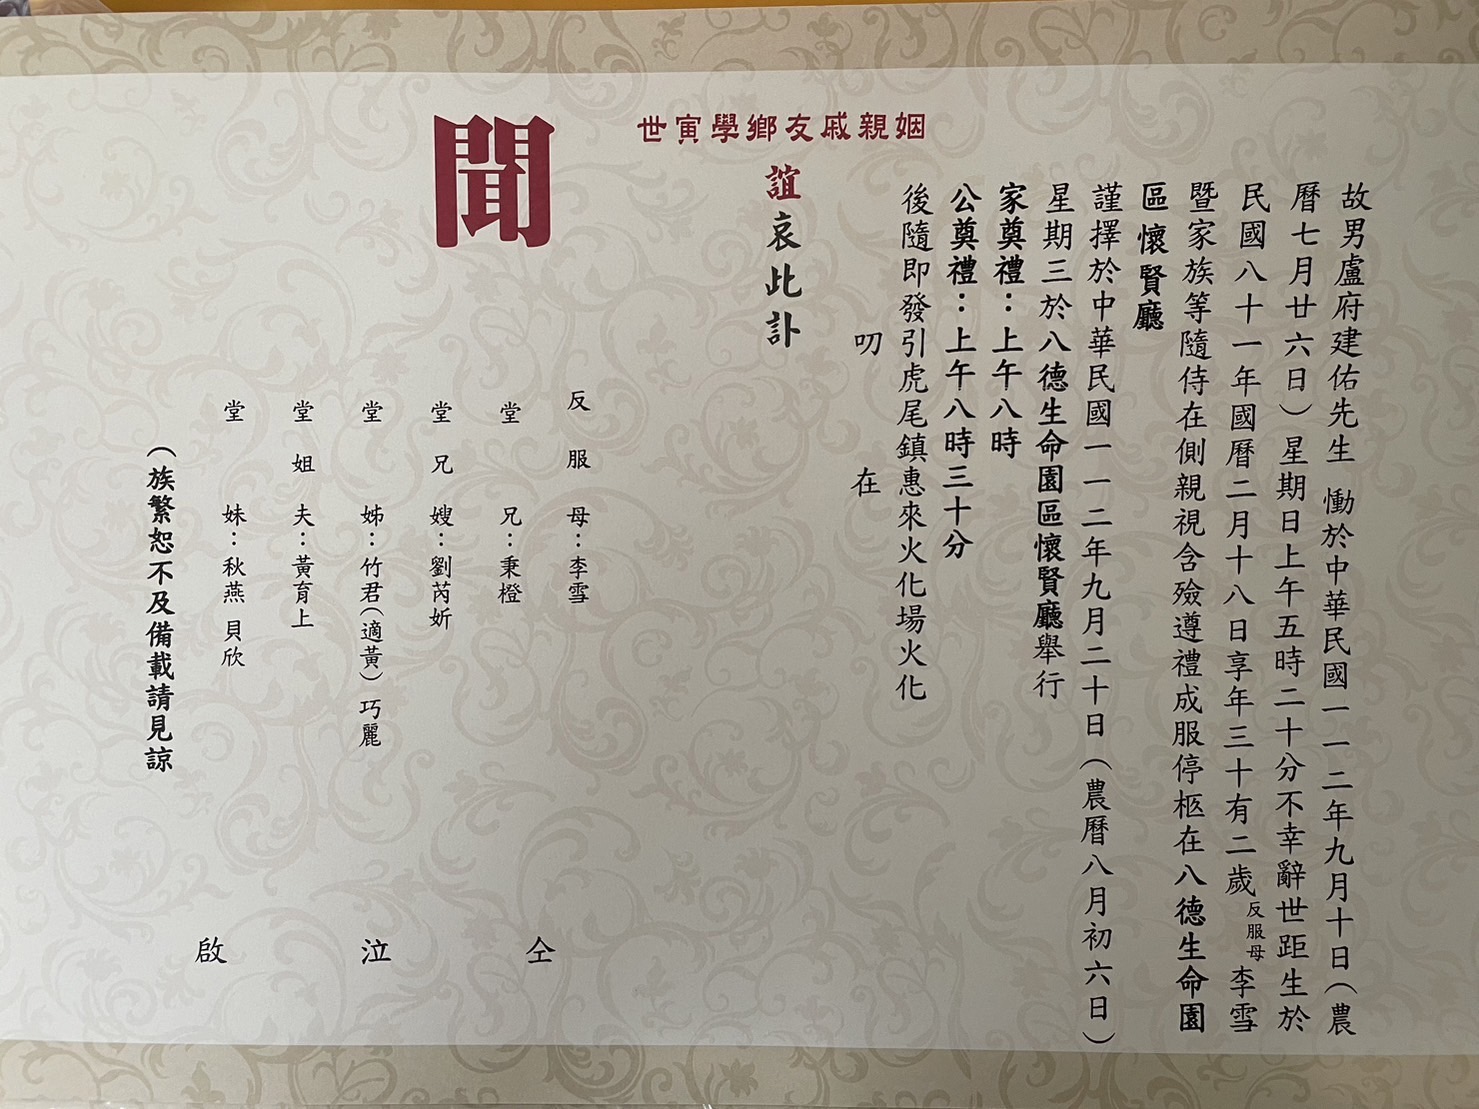 故男盧府建佑先生 慟於中華民國一一二年九月十日（農
曆七月廿六日）星期日上午五時二十分不幸辭世距生於
民國八十一年國曆二月十八日享年三十有二歲反服母李雪
暨家族等隨侍在側親視含殮遵禮成服停柩在八德生命園
區懷賢廳
謹擇於中華民國一一二年九月二十日（農曆八月初六日）
星期三於八德生命園區懷賢廳舉行
家奠禮：上午八時
公奠禮：上午八時三十分
後隨即發引虎尾鎮惠來火化場火化
叨 在
姻親戚友鄉學寅世
誼哀此訃
聞
反服母：李雪
堂兄：秉橙
堂兄嫂：劉芮妡
堂姊：竹君（適黃）巧麗
堂姐夫：黃育上
堂妹：秋燕 貝欣
（族繁恕不及備載請見諒
仝 泣 啟